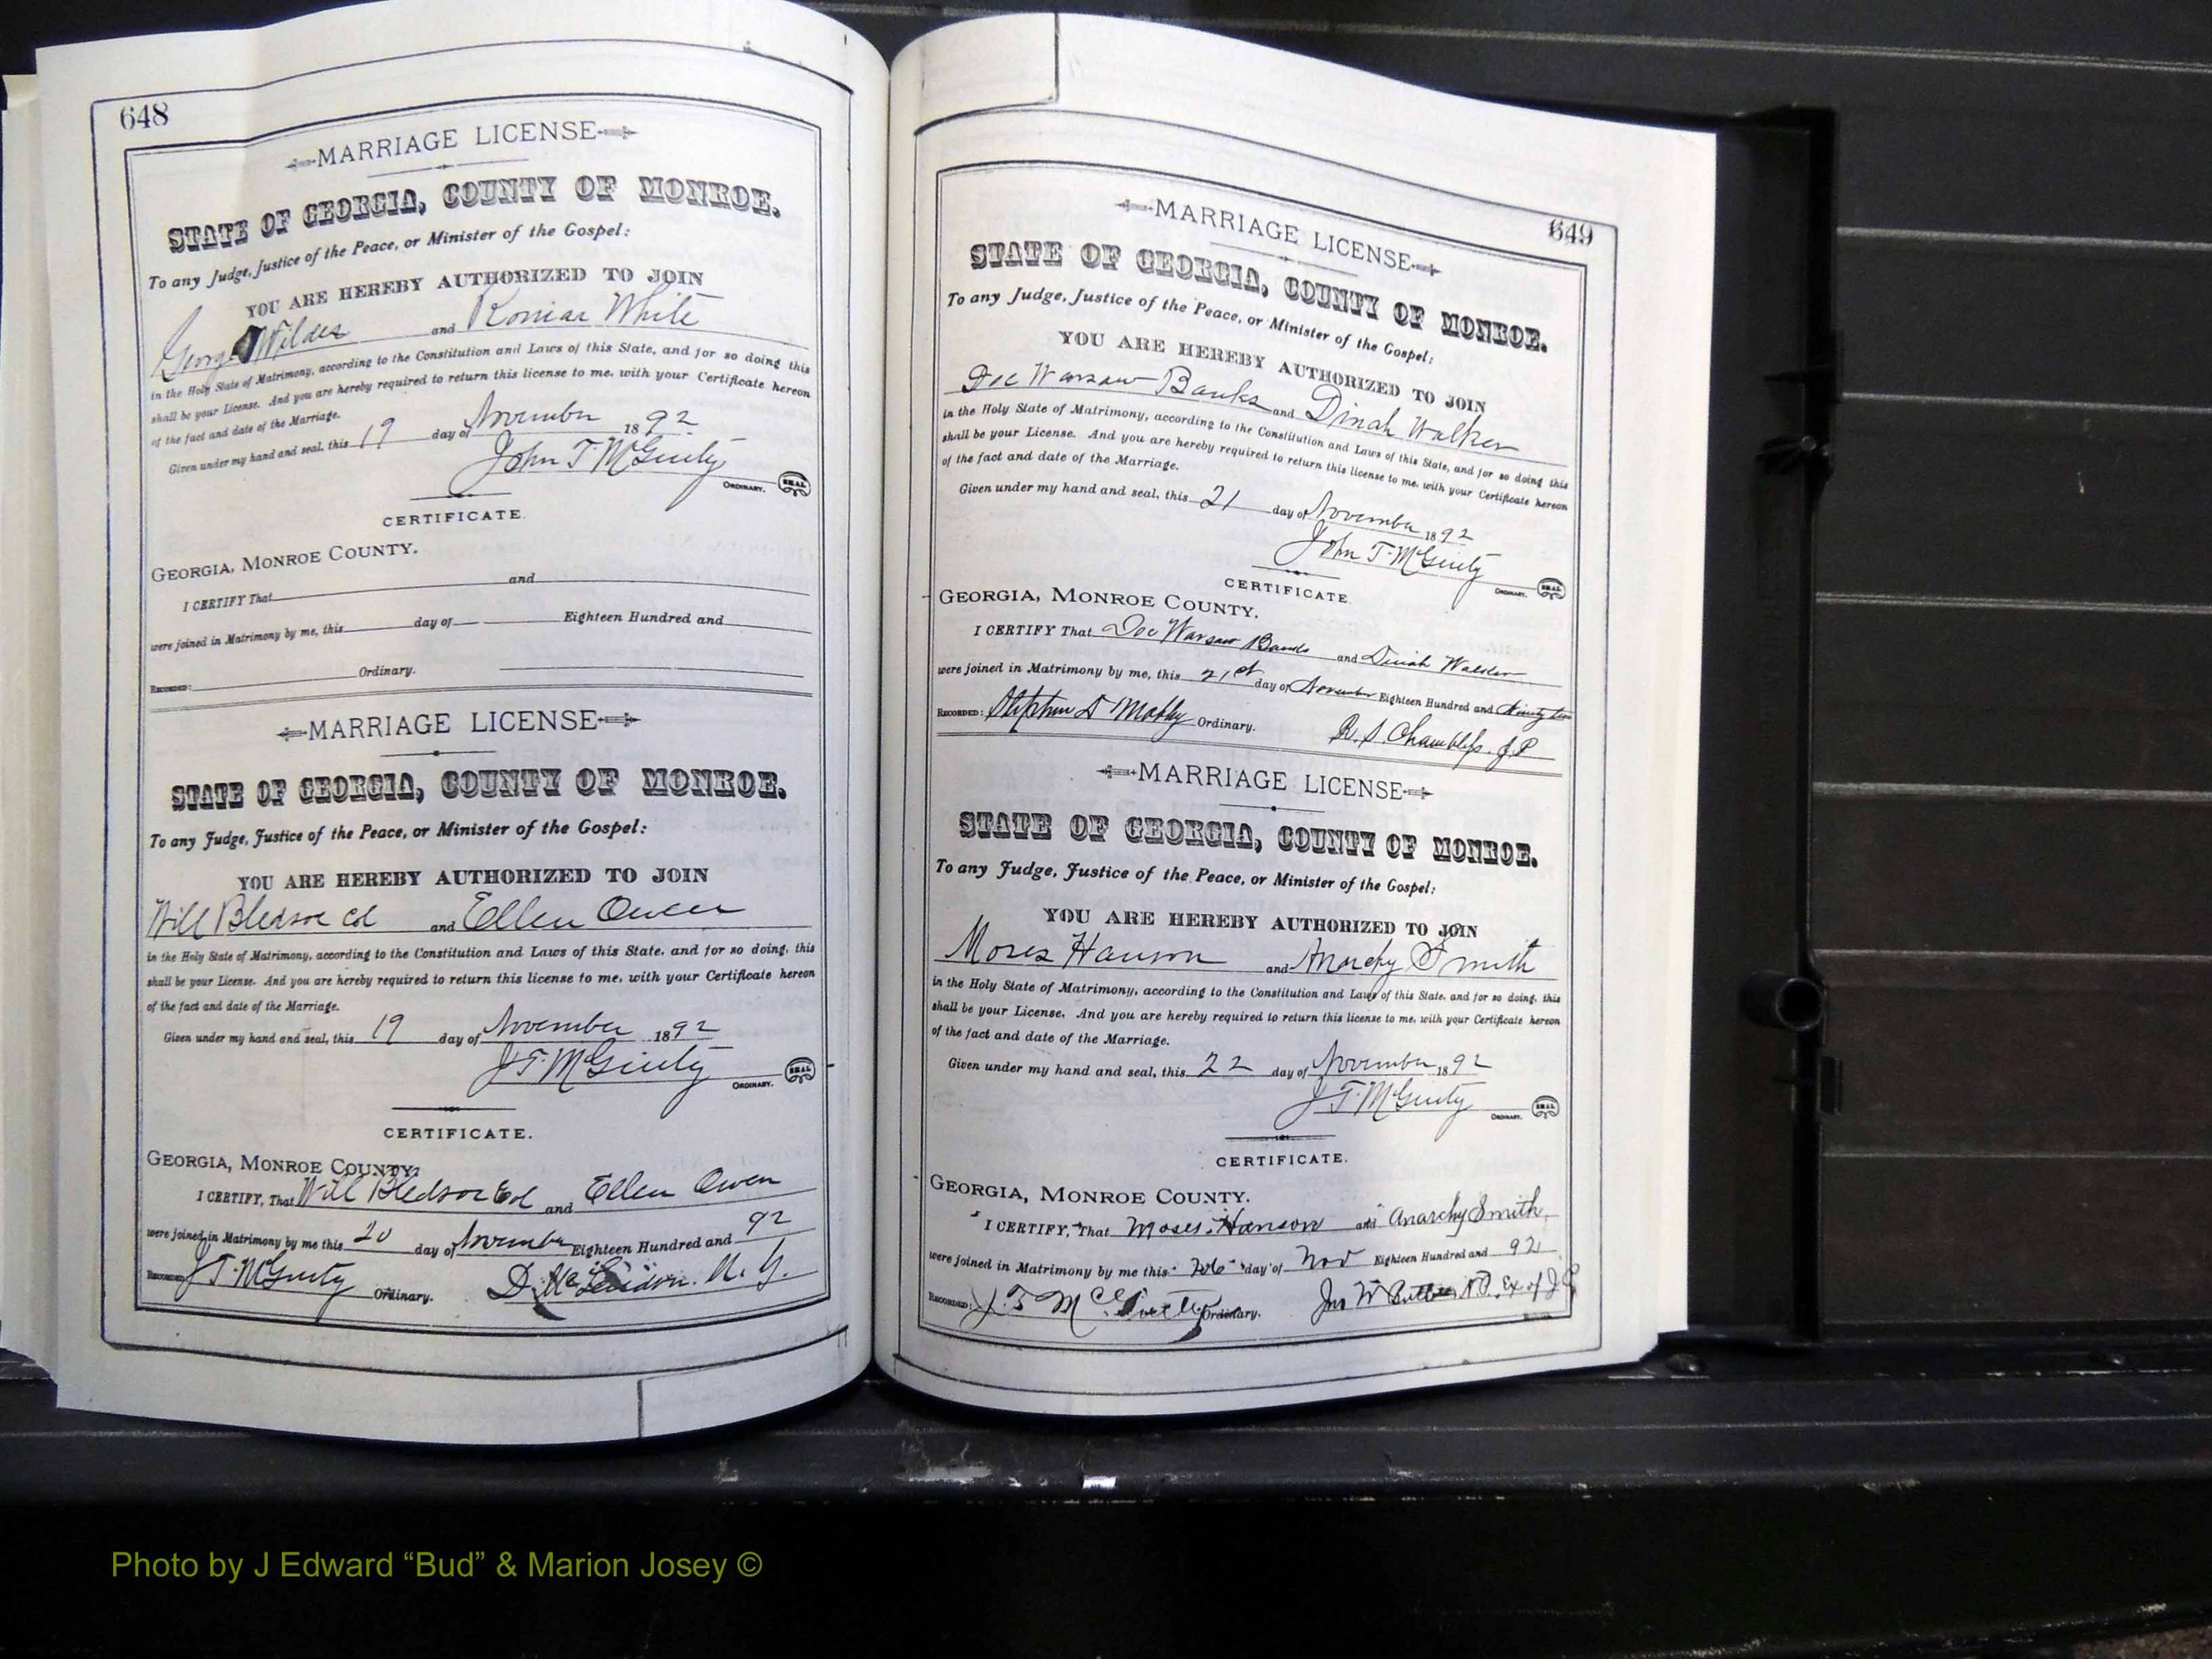 648
MARRIAGE LICENSE
STATE OF GEORGIA, COUNTY OF MONROE.
To any Judge, Justice of the Peace, or Minister of the Gospel:
YOU ARE HEREBY AUTHORIZED TO JOIN
George Wilder and White
in the Holy State of Matrimony, according to the Constitution and Laws of this State, and for so doing this
shall be your License. And you are hereby required to return this license to me, with your Certificate hereon
of the fact and date of the Marriage.
Given under my hand and seal, this 19 day of November 1892
John T. McGinty
ORDINARY. SEAL
CERTIFICATE.
GEORGIA, MONROE COUNTY.
I CERTIFY That and
were joined in Matrimony by me, this day of Eighteen Hundred and
RECORDED: Ordinary.
MARRIAGE LICENSE
STATE OF GEORGIA, COUNTY OF MONROE.
To any Judge, Justice of the Peace, or Minister of the Gospel:
YOU ARE HEREBY AUTHORIZED TO JOIN
Will Bledsoe col and Ellen Owen
in the Holy State of Matrimony, according to the Constitution and Laws of this State, and for so doing, this
shall be your License. And you are hereby required to return this license to me, with your Certificate hereon
of the fact and date of the Marriage.
Given under my hand and seal, this 19 day of November 1892
J. T. McGinty
ORDINARY. SEAL
CERTIFICATE.
GEORGIA, MONROE COUNTY.
I CERTIFY, That Will Bledsoe Col and Ellen Owen
were joined in Matrimony by me this 20 day of November Eighteen Hundred and 92
RECORDED: J. T. McGinty Ordinary. D. M. G.
649
MARRIAGE LICENSE
STATE OF GEORGIA, COUNTY OF MONROE.
To any Judge, Justice of the Peace, or Minister of the Gospel:
YOU ARE HEREBY AUTHORIZED TO JOIN
Doc Warsaw Banks and Dinah Walker
in the Holy State of Matrimony, according to the Constitution and Laws of this State, and for so doing this
shall be your License. And you are hereby required to return this license to me, with your Certificate hereon
of the fact and date of the Marriage.
Given under my hand and seal, this 21 day of November 1892
John T. McGinty
ORDINARY. SEAL
CERTIFICATE.
GEORGIA, MONROE COUNTY.
I CERTIFY That Doc Warsaw Banks and Dinah Walker
were joined in Matrimony by me, this 21st day of November Eighteen Hundred and Ninety two
RECORDED: Stephen D Mobly Ordinary. R. S. Chambless. J.P
MARRIAGE LICENSE
STATE OF GEORGIA, COUNTY OF MONROE.
To any Judge, Justice of the Peace, or Minister of the Gospel:
YOU ARE HEREBY AUTHORIZED TO JOIN
Moses Hanson and Anarchy Smith
in the Holy State of Matrimony, according to the Constitution and Laws of this State, and for so doing, this
shall be your License. And you are hereby required to return this license to me, with your Certificate hereon
of the fact and date of the Marriage.
Given under my hand and seal, this 22 day of November 1892
J. T. McGinty
ORDINARY. SEAL
CERTIFICATE.
GEORGIA, MONROE COUNTY.
I CERTIFY, That Moses Hanson and Anarchy Smith
were joined in Matrimony by me this 26 day of Nov Eighteen Hundred and 92
RECORDED: J. T. Ordinary. Jno W N.P. Ex of J.P
Photo by J Edward “Bud” & Marion Josey ©